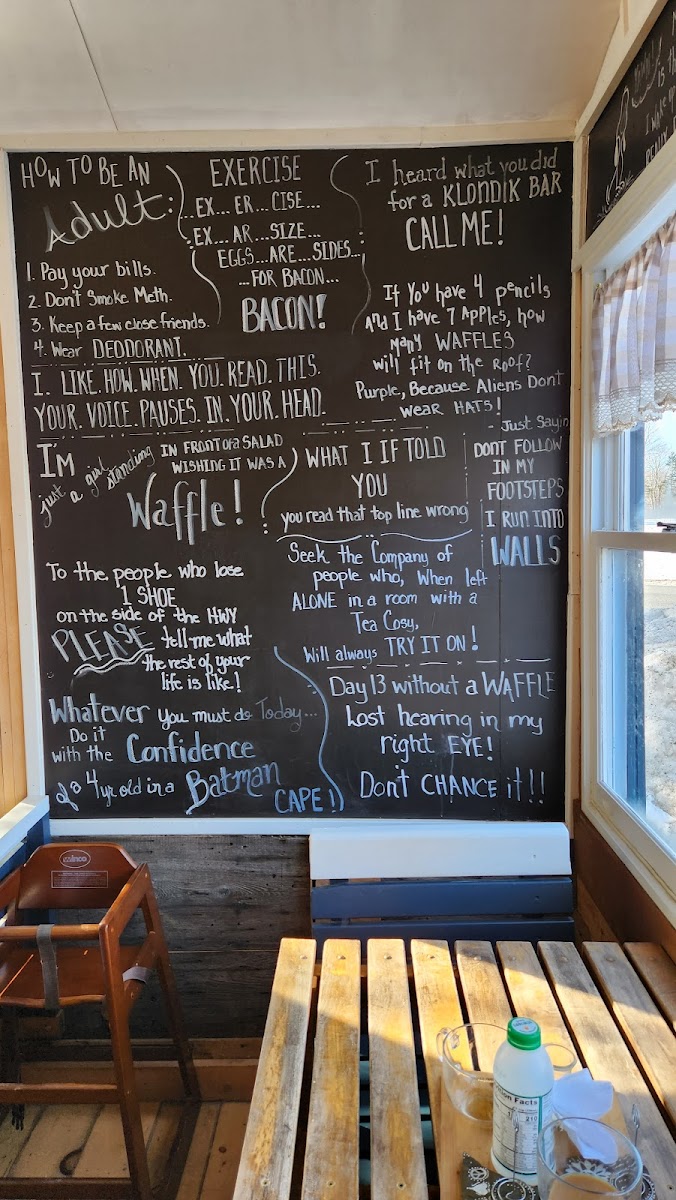 HOW TO BE AN
Adult:
1. Pay your bills.
2. Don't Smoke Meth.
3. Keep a few close friends.
4. Wear DEODORANT.
EXERCISE
...EX... ER...CISE...
...EX...AR...SIZE...
EGGS...ARE...SIDES...
...FOR BACON...
BACON!
I heard what you did
for a KLONDIK BAR
CALL ME!
If You have 4 pencils
And I have 7 Apples, how
many WAFFLES
will fit on the Roof?
Purple, Because Aliens Dont
wear HATS!
I. LIKE. HOW. WHEN. YOU. READ. THIS.
YOUR. VOICE. PAUSES. IN. YOUR. HEAD.
I'm
just a girl standing IN FRONT of a SALAD
WISHING IT WAS A
Waffle!
WHAT I IF TOLD
YOU
you read that top line wrong
Just Sayin
DONT FOLLOW
IN MY
FOOTSTEPS
I RUN INTO
WALLS
To the people who lose
1 SHOE
on the side of the HWY
PLEASE tell me what
the rest of your
life is like!
Seek the Company of
people who, When left
ALONE in a room with a
Tea Cosy,
Will always TRY IT ON!
Whatever you must do Today...
Do it
with the Confidence
of a 4 yr old in a Batman
CAPE!
Day 13 without a WAFFLE
Lost hearing in my
right EYE!
Dont CHANCE it!!
is the